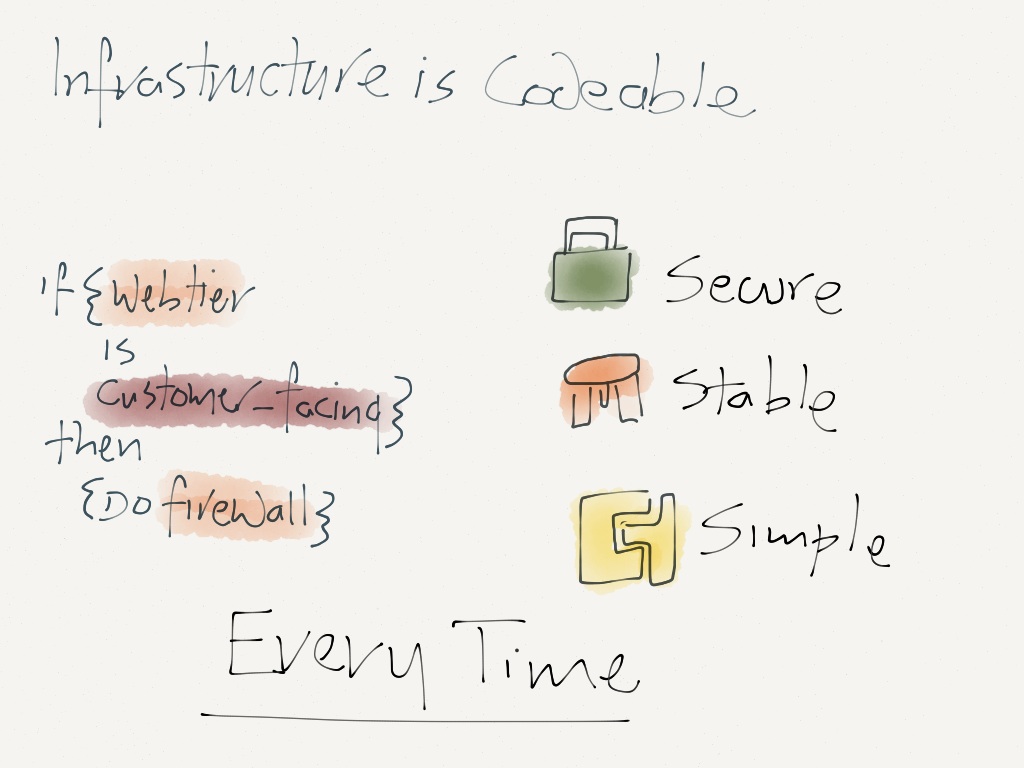 Infrastructure is Codeable
if {Webtier
is
customer_facing}
then
{Do firewall}
Secure
Stable
Simple
Every Time